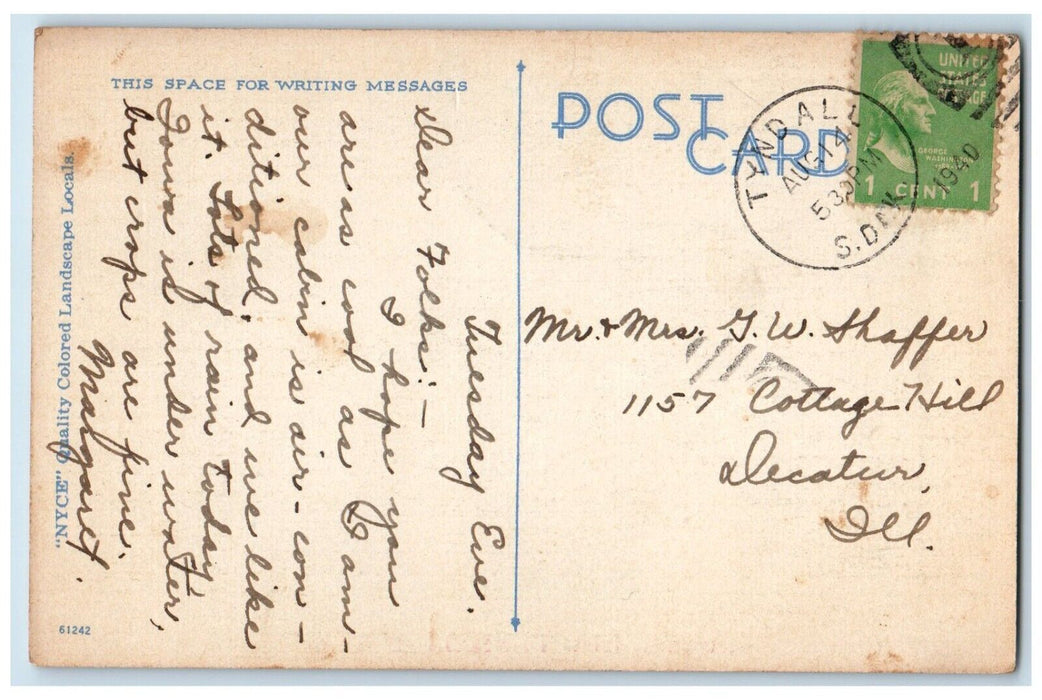 THIS SPACE FOR WRITING MESSAGES
POST
CARD
Tuesday Eve.
Dear Folks:—
I hope you
are as cool as I am—
our cabin is air-con-
ditioned, and we like
it. Lots of rain today
Iowa is under water,
but crops are fine.
Margaret.
"NYCE" Quality Colored Landscape Locals.
61242
TYNDALL
AUG 14
530PM
1940
S. DAK
UNITED
STATES
POSTAGE
GEORGE
WASHINGTON
1 CENT 1
Mr. & Mrs. G. W. Shaffer
1157 Cottage Hill
Decatur,
Ill.